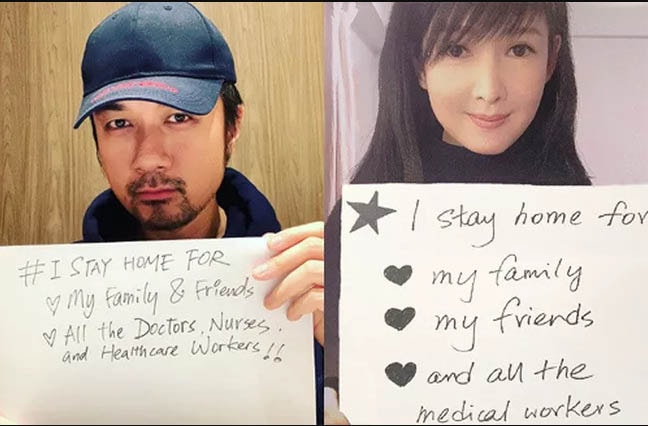 # I STAY HOME FOR
♡ My Family & Friends
♡ All the Doctors, Nurses,
and Healthcare Workers!!
★ I stay home for
♥ my family
♥ my friends
♥ and all the
medical workers